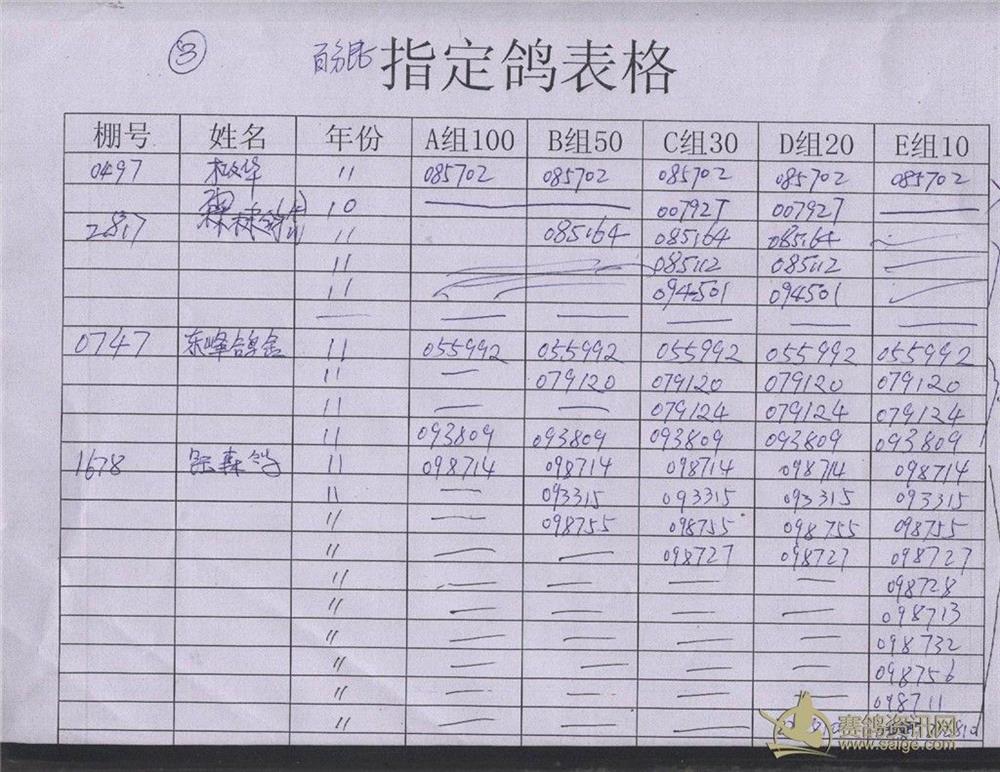 ③
指定鸽表格
棚号 姓名 年份 A组100 B组50 C组30 D组20 E组10
0497 11 085702 085702 085702 085702 085702
10 — — 007927 007927 —
2817 11 085164 085164 085164
11 085112 085112 —
11 094501 094501
— — — — — —
0747 东峰鸽舍 11 055992 055992 055992 055992 055992
11 — 079120 079120 079120 079120
11 — — 079124 079124 079124
11 093809 093809 093809 093809 093809
1678 11 098714 098714 098714 098714 098714
11 — 093315 093315 093315 093315
11 — 098755 098755 098755 098755
11 — — 098727 098727 098727
11 — — — — 098728
11 — — — — 098713
11 — — — — 098732
11 — — — — 098756
11 — — — — 098711
11 — — —
赛鸽资讯网
www.saige.com